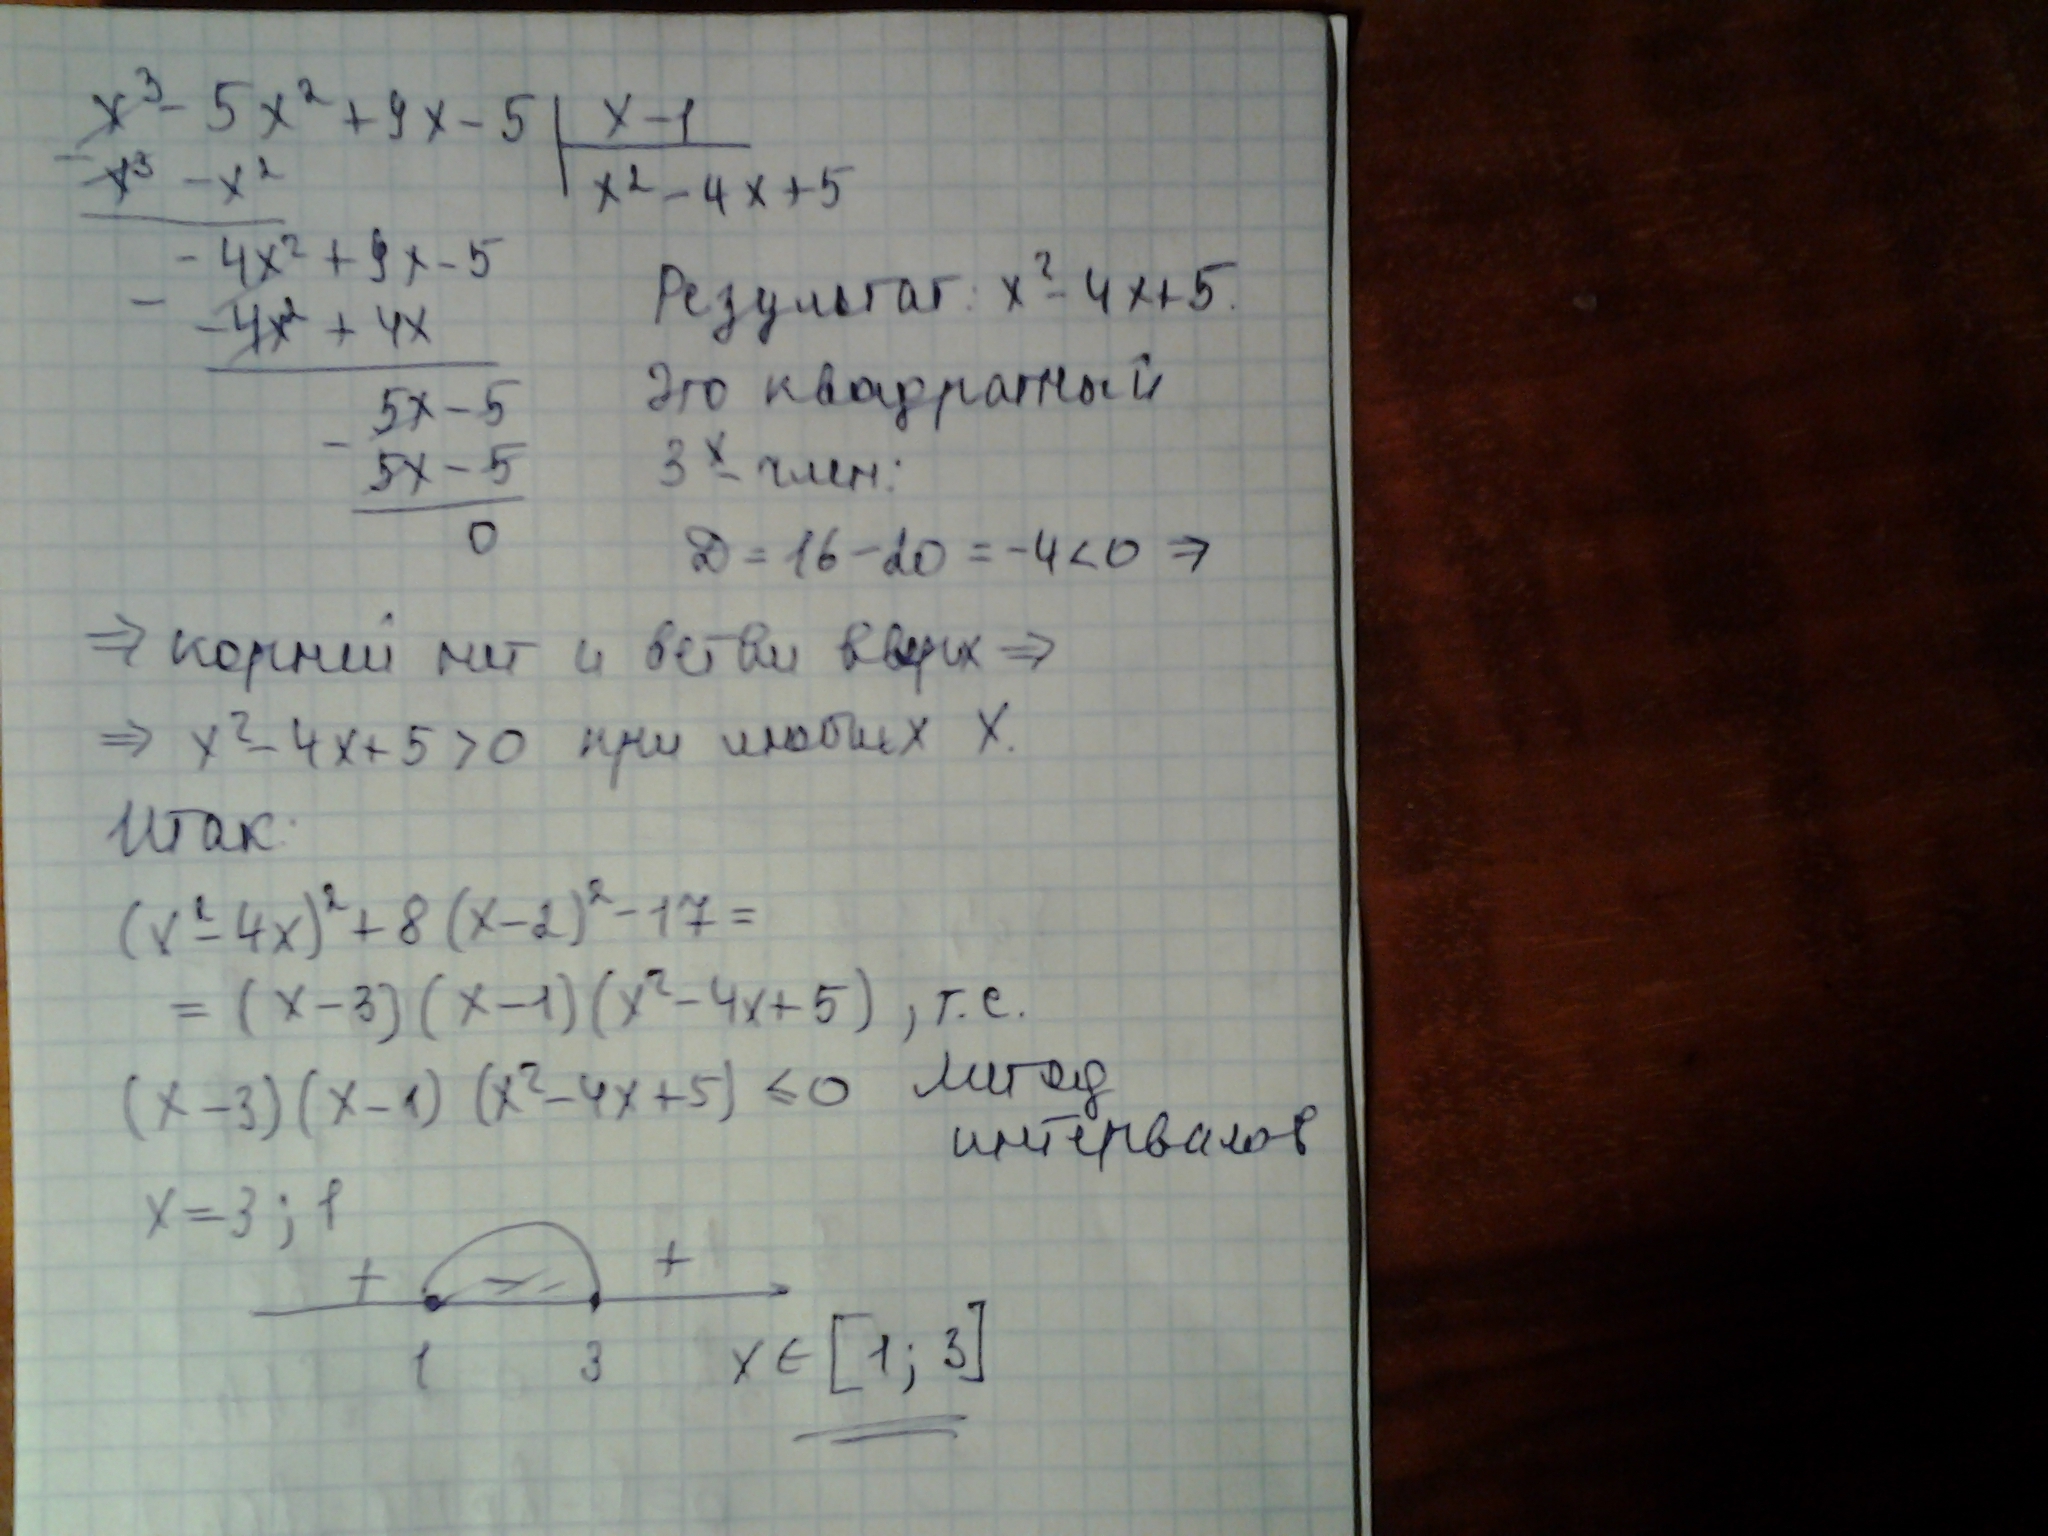 x³ - 5x² + 9x - 5 | x - 1
- x³ - x² | x² - 4x + 5
- 4x² + 9x - 5
- - 4x² + 4x
5x - 5
- 5x - 5
0
Результат: x² - 4x + 5.
Это квадратный
3х-член:
D = 16 - 20 = -4 < 0 ⇒
⇒ корней нет и ветви вверх ⇒
⇒ x² - 4x + 5 > 0 при любых X.
Итак:
(x² - 4x)² + 8(x - 2)² - 17 =
= (x - 3)(x - 1)(x² - 4x + 5), т.е.
(x - 3)(x - 1)(x² - 4x + 5) ≤ 0 метод
интервалов
x = 3; 1
+ - +
1 3 x ∈ [1; 3]